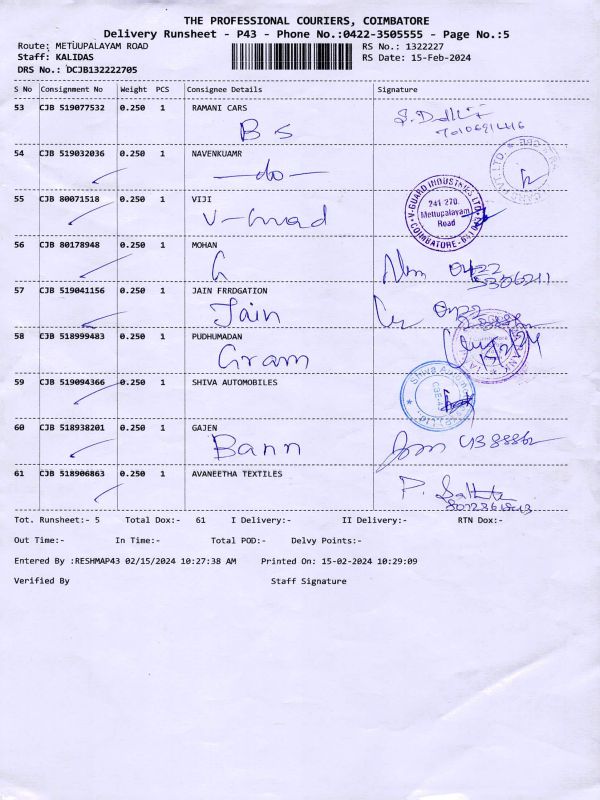 THE PROFESSIONAL COURIERS, COIMBATORE
Delivery Runsheet - P43 - Phone No.:0422-3505555 - Page No.:5
Route: METUUPALAYAM ROAD RS No.: 1322227
Staff: KALIDAS RS Date: 15-Feb-2024
DRS No.: DCJB132222705
S No Consignment No Weight PCS Consignee Details Signature
53 CJB 519077532 0.250 1 RAMANI CARS
B s
54 CJB 519032036 0.250 1 NAVENKUAMR
-do-
55 CJB 80071518 0.250 1 VIJI
V-Guard
V-GUARD INDUSTRIES LTD.
241-270
Mettupalayam
Road
COIMBATORE
56 CJB 80178948 0.250 1 MOHAN
G
0422
57 CJB 519041156 0.250 1 JAIN FRRDGATION
Jain
0422
58 CJB 518999483 0.250 1 PUDHUMADAN
Gram
59 CJB 519094366 0.250 1 SHIVA AUTOMOBILES
60 CJB 518938201 0.250 1 GAJEN
Bann
61 CJB 518906863 0.250 1 AVANEETHA TEXTILES
Tot. Runsheet:- 5 Total Dox:- 61 I Delivery:- II Delivery:- RTN Dox:-
Out Time:- In Time:- Total POD:- Delvy Points:-
Entered By :RESHMAP43 02/15/2024 10:27:38 AM Printed On: 15-02-2024 10:29:09
Verified By Staff Signature